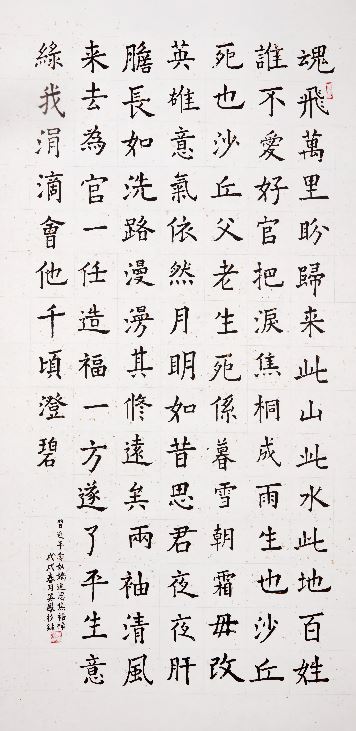 魂飛萬里盼歸来此山此水此地百姓
誰不愛好官把淚焦桐成雨生也沙丘
死也沙丘父老生死係暮雪朝霜毋改
英雄意氣依然月明如昔思君夜夜肝
膽長如洗路漫漫其修遠矣兩袖清風
来去為官一任造福一方遂了平生意
綠我涓滴會他千頃澄碧
習近平念奴嬌追思焦裕祿
戊戌春月